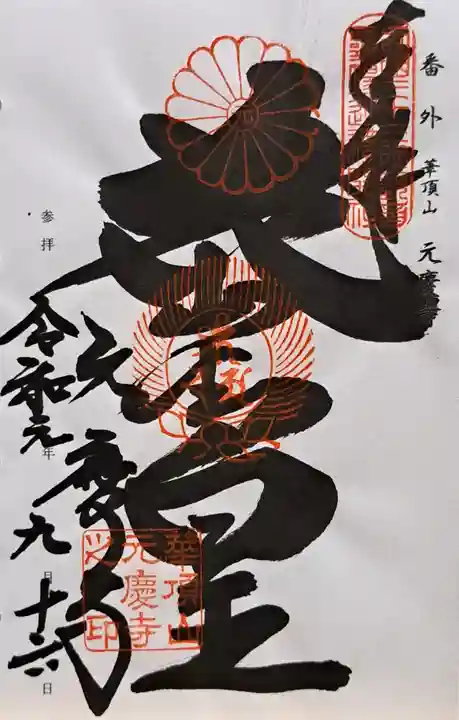 番外 華頂山 元慶寺
奉拝
花山法皇
元慶寺
参拝
令和元年九月十六日
華頂山
元慶寺
之印